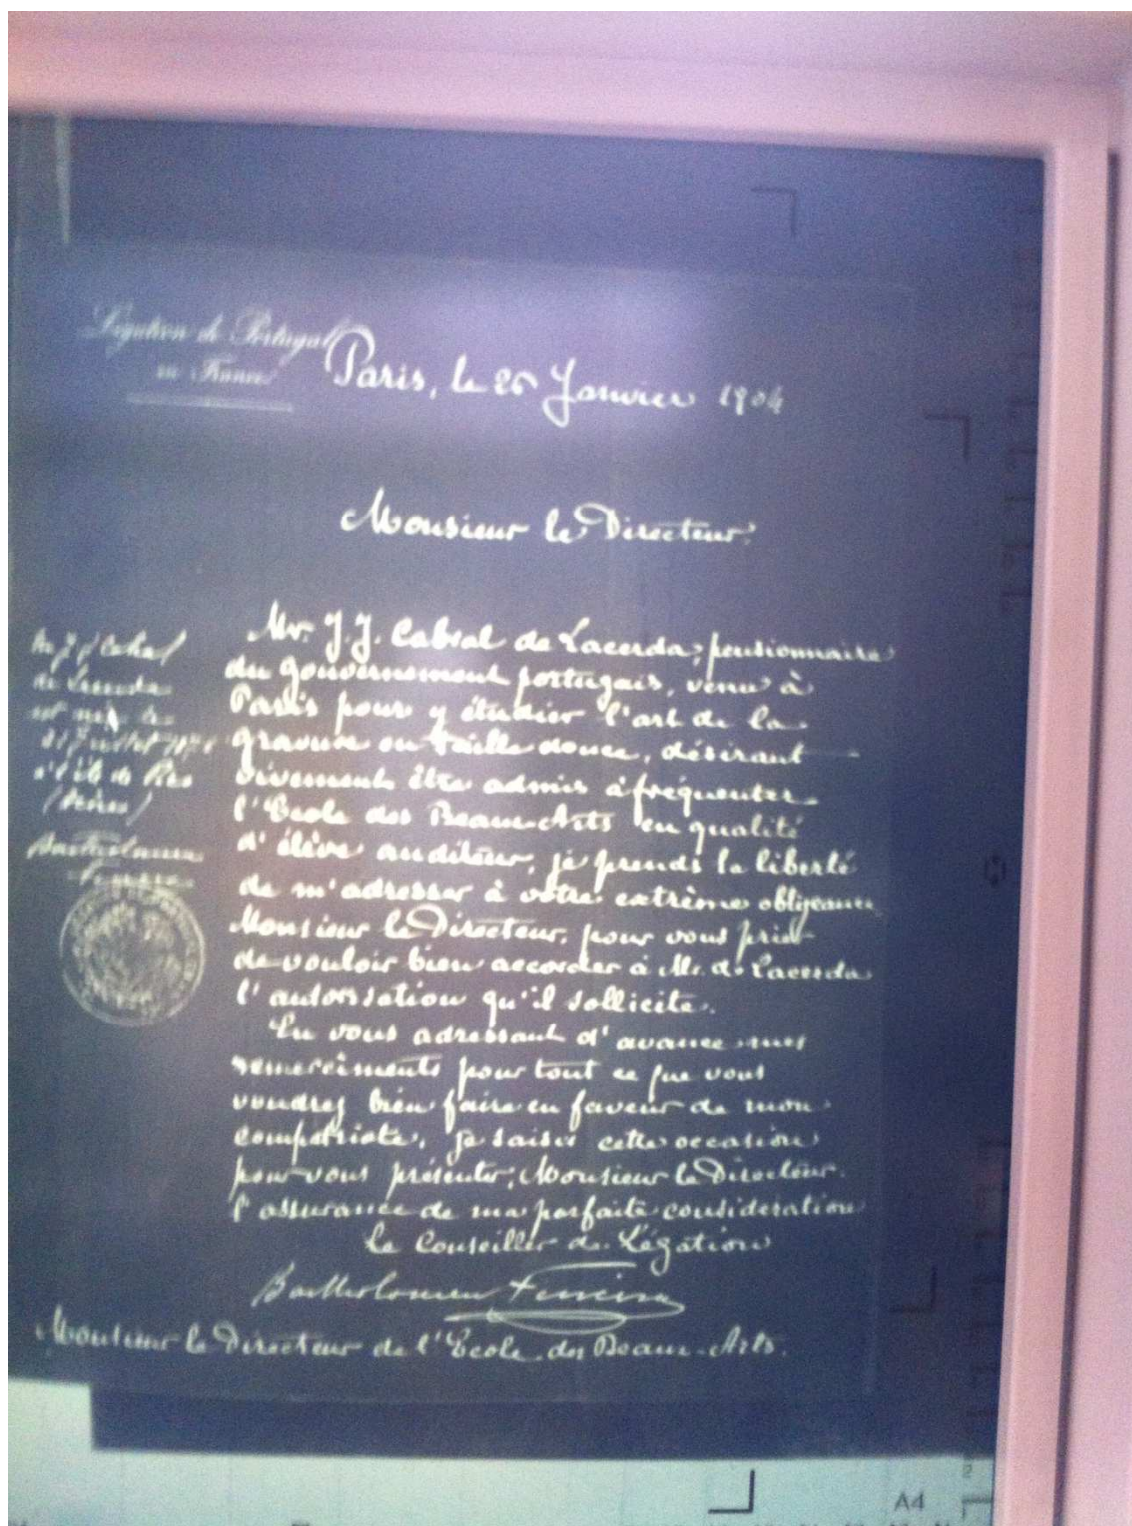 Légation de Portugal
en France
Paris, le 26 Janvier 1904
Monsieur le Directeur,
Mr. J. J. Cabral de Lacerda, pensionnaire
du Gouvernement portugais, venu à
Paris pour y étudier l'art de la
gravure en taille douce, désirant
vivement être admis à fréquenter
l'Ecole des Beaux-Arts en qualité
d'élève auditeur, je prends la liberté
de m'adresser à votre extrème obligeance
Monsieur le Directeur, pour vous prier
de vouloir bien accorder à Mr. de Lacerda
l'autorisation qu'il sollicite.
En vous adressant d'avance mes
remerciments pour tout ce que vous
voudrez bien faire en faveur de mon
compatriote, je saisis cette occasion
pour vous présenter, Monsieur le Directeur,
l'assurance de ma parfaite considération
Le Conseiller de Légation
Bartholomeu Ferreira
Monsieur le Directeur de l'Ecole des Beaux-Arts.
Mr J J Cabral
de Lacerda
est né le
Juillet
Bartholomeu
Ferreira
A4